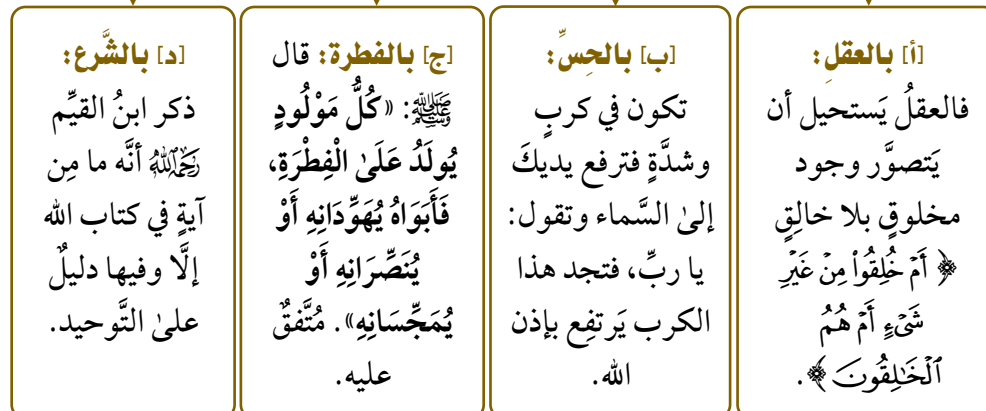 [أ] بالعقلِ:
فالعقلُ يَستحيل أن
يَتصوَّر وجود
مخلوقٍ بلا خالِقٍ
﴿أَمۡ خُلِقُواْ مِنۡ غَيۡرِ
شَيۡءٍ أَمۡ هُمُ
ٱلۡخَٰلِقُونَ﴾.
[ب] بالحِسِّ:
تكون في كربٍ
وشدَّةٍ فترفع يديكَ
إلىٰ السَّماء وتقول:
يا ربِّ، فتجد هذا
الكرب يَرتفِع بإذن
الله.
[ج] بالفطرة: قال
ﷺ: «كُلُّ مَوْلُودٍ
يُولَدُ عَلَىٰ الْفِطْرَةِ،
فَأَبَوَاهُ يُهَوِّدَانِهِ أَوْ
يُنَصِّرَانِهِ أَوْ
يُمَجِّسَانِهِ». مُتَّفقٌ
عليه.
[د] بالشَّرع:
ذكر ابنُ القيِّم
رَحِمَهُ اللَّهُ أنَّه ما مِن
آيةٍ في كتاب الله
إلَّا وفيها دليلٌ
علىٰ التَّوحيد.